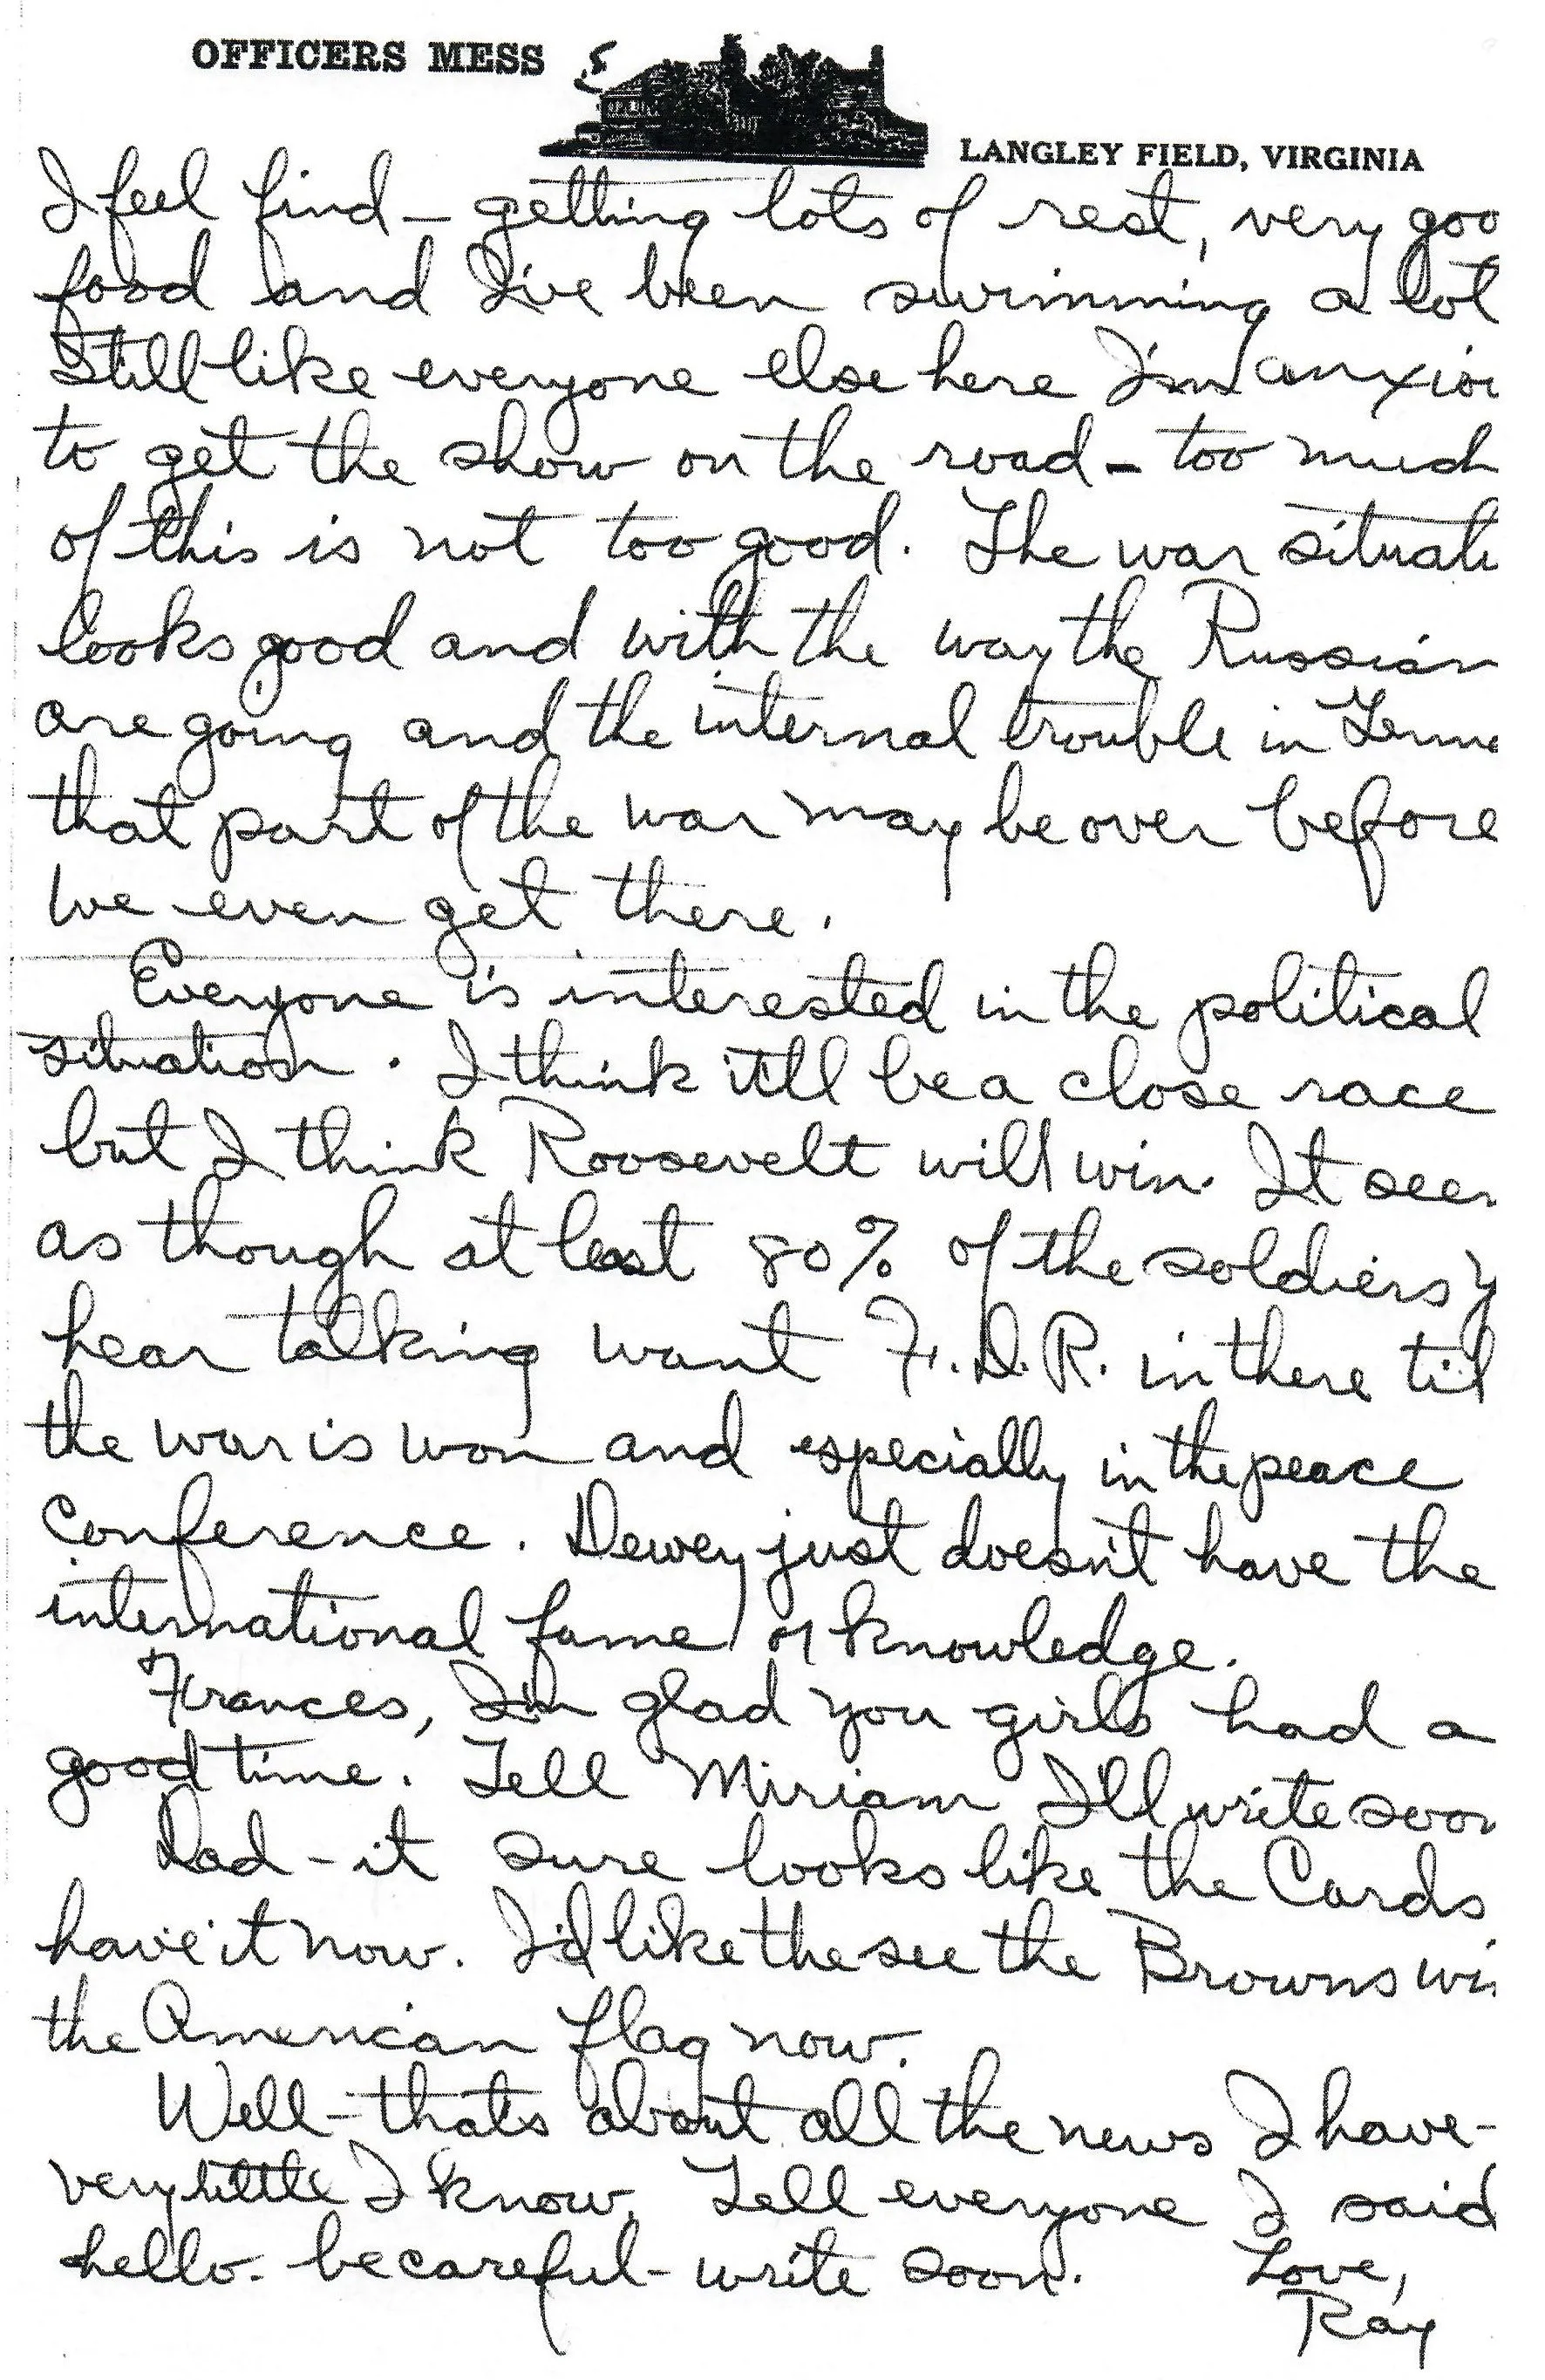 OFFICERS MESS
LANGLEY FIELD, VIRGINIA
I feel find - getting lots of rest, very goo
food and I've been swimming a lot
Still like everyone else here I'm anxiou
to get the show on the road - too much
of this is not too good. The war situati
looks good and with the way the Russian
are going and the internal trouble in Germa
that part of the war may be over before
we even get there.
Everyone is interested in the political
situation. I think it'll be a close race
but I think Roosevelt will win. It seem
as though at least 80% of the soldiers y
hear talking want F.D.R. in there til
the war is won and especially in the peace
conference. Dewey just doesn't have the
international fame or knowledge.
Frances, I'm glad you girls had a
good time. Tell Miriam I'll write soon
Dad - it sure looks like the Cards
have it now. I'd like the see the Browns wi
the American flag now.
Well - that's about all the news I have -
very little I know. Tell everyone I said
hello - be careful - write soon. Love,
Ray